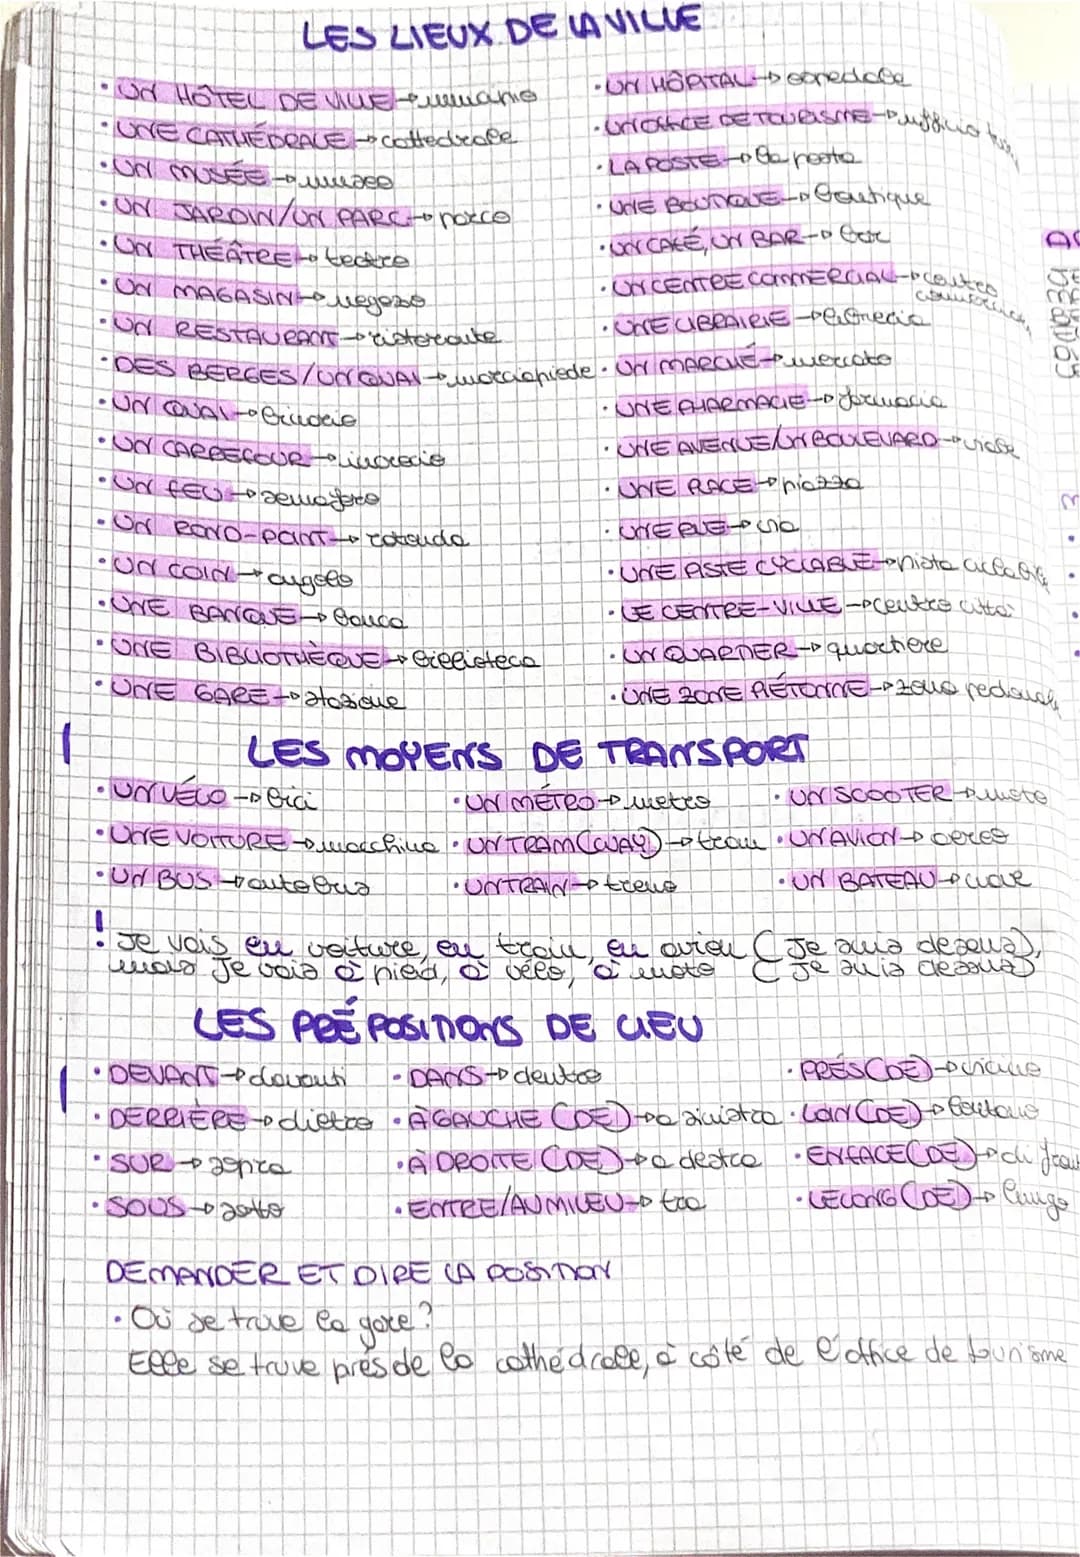 LES LIEUX DE LA VILLE
• UN HÔTEL DE VILLE → municipio
• UNE CATHÉDRALE → cattedrale
• UN MUSÉE → museo
• UN JARDIN/UN PARC → parco
• UN THÉÂTRE → teatro
• UN MAGASIN → negozio
• UN RESTAURANT → ristorante
• DES BERGES/UN QUAI → marciapiede
• UN QUAI → binario
• UN CARREFOUR → incrocio
• UN FEU → semaforo
• UN ROND-POINT → rotonda
• UN COIN → angolo
• UNE BANQUE → banca
• UNE BIBLIOTHÈQUE → biblioteca
• UNE GARE → stazione
• UN HÔPITAL → ospedale
• UN OFFICE DE TOURISME → ufficio
• LA POSTE → la posta
• UNE BOUTIQUE → boutique
• UN CAFÉ, UN BAR → bar
• UN CENTRE COMMERCIAL → centro
• UNE LIBRAIRIE → libreria
• UN MARCHÉ → mercato
• UNE PHARMACIE → farmacia
• UNE AVENUE/UN BOULEVARD → viale
• UNE PLACE → piazza
• UNE RUE → via
• UNE PISTE CYCLABLE → pista ciclabile
• LE CENTRE-VILLE → centro città
• UN QUARTIER → quartiere
• UNE ZONE PIÉTONNE → zona pedonale
LES MOYENS DE TRANSPORT
• UN VÉLO → bici • UN MÉTRO → metro • UN SCOOTER → moto
• UNE VOITURE → macchina • UN TRAM(WAY) → tram • UN AVION → aereo
• UN BUS → autobus • UN TRAIN → treno • UN BATEAU → nave
! Je vais en voiture, en train, en avion (Je suis dessus),
mais Je vais à pied, à vélo, à moto (Je suis dessus)
LES PRÉPOSITIONS DE LIEU
• DEVANT → davanti • DANS → dentro • PRÈS(DE) → vicino
• DERRIÈRE → dietro • À GAUCHE (DE) → a sinistra • LOIN(DE) → lontano
• SUR → sopra • À DROITE (DE) → a destra • EN FACE(DE) → di
• SOUS → sotto • ENTRE/AU MILIEU → tra • LE LONG (DE) → lungo
DEMANDER ET DIRE LA POSITION
• Où se truve la gare?
Elle se truve près de la cathédrale, à côté de l'office de tourisme